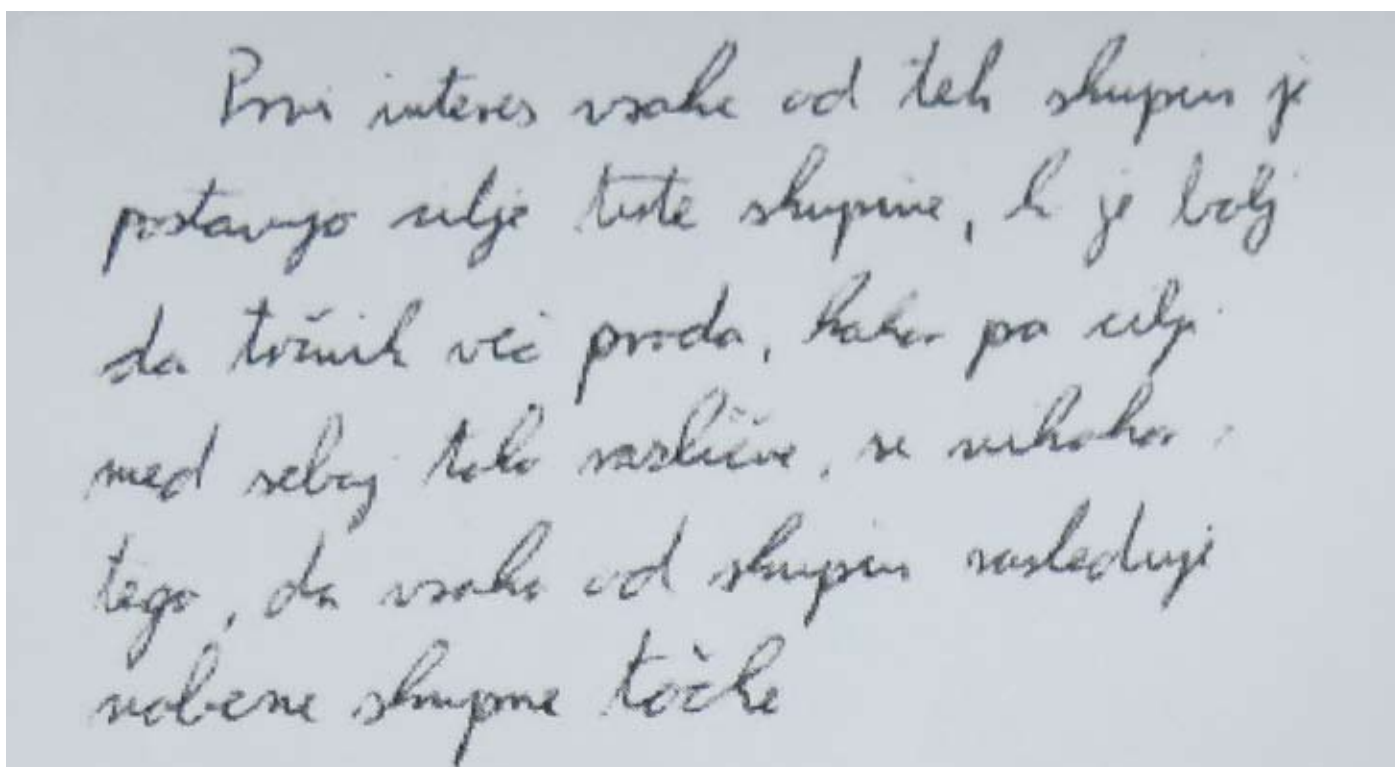 Prvi interes vsake od teh skupin je
postavijo cilje tiste skupine, k je bolj
da točnik več proda, kakor pa cilji
med seboj tako različne, se nikakor
tega, da vsaka od skupin zasleduje
nobene skupne točke